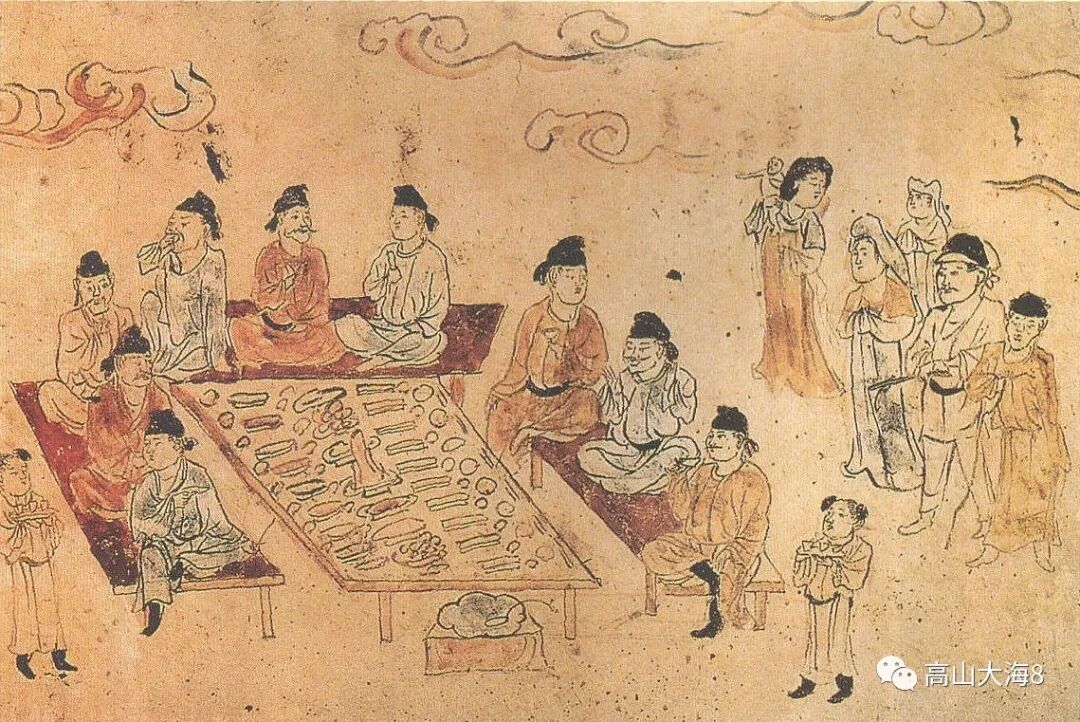 高山大海8